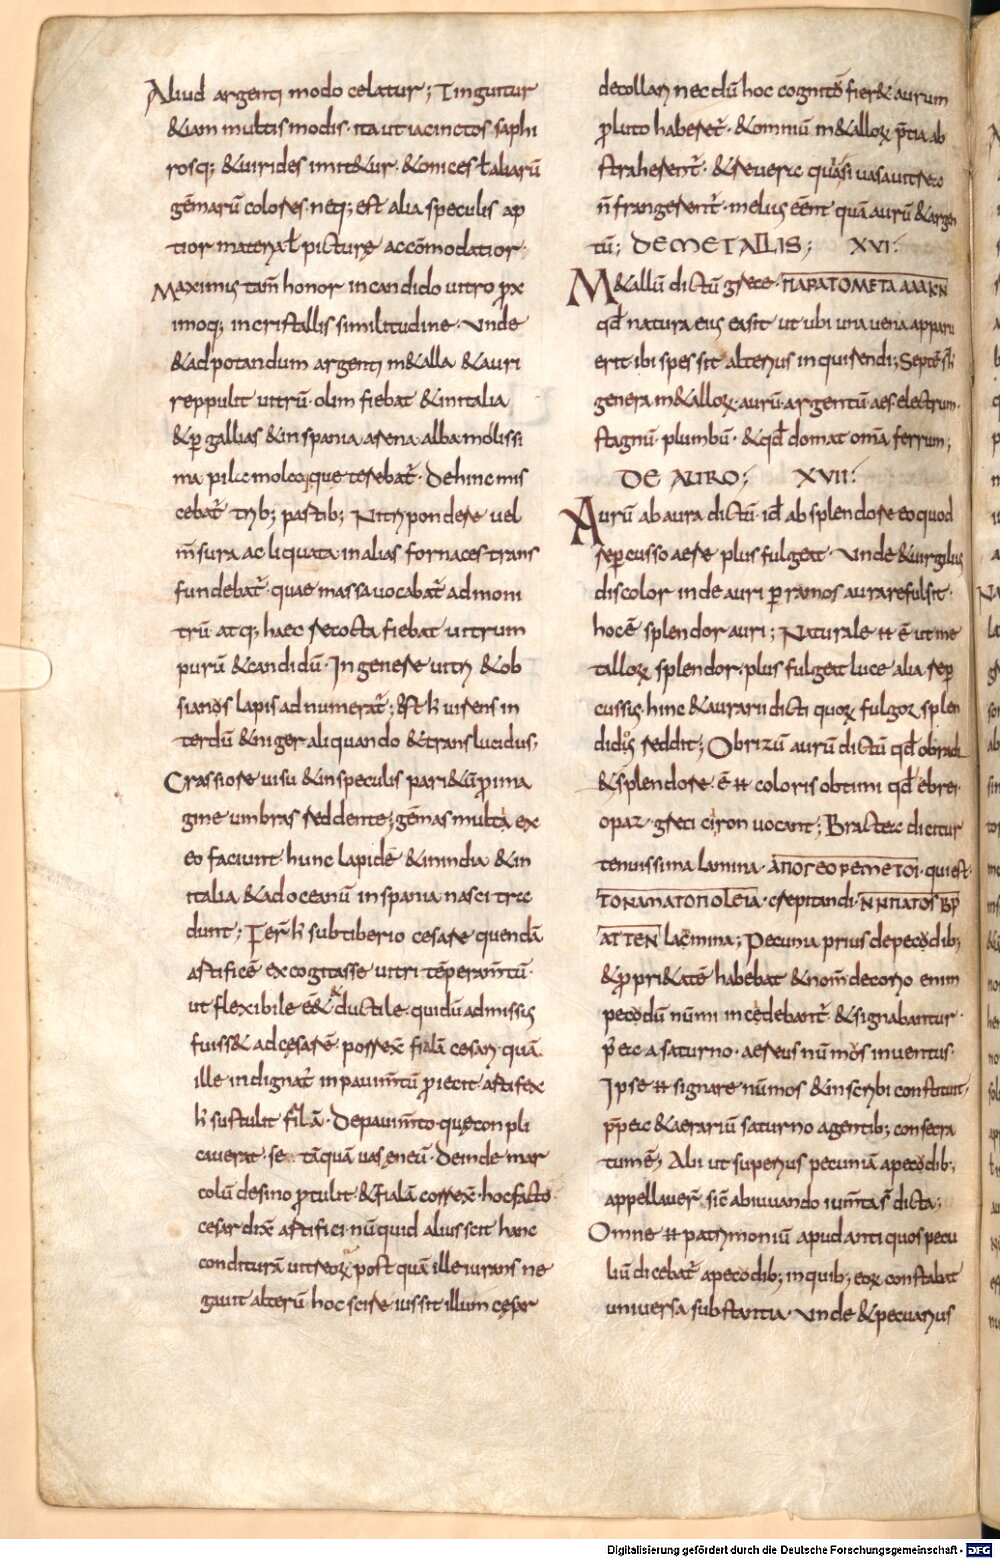 Aliud argenti modo celatur; Tinguitur
&iam multis modis· ita ut iacinctos saphi
rosq; &uirides imit&ur· &onices ł aliarū
gēmarū colores· neq; est alia speculis ap
tior materia ł picturę accōmodatior·
Maximus tam̄ honor in candido uitro prox
imoq; in cristallis similitudine· Unde
&ad potandum argenti m&alla &auri
reppulit uitrū· olim fiebat &in italia
&p gallias &in spania arena alba mollissi
ma pila molaq;que terebat̄· Dehinc mis
cebat̄ trib; partib; Nitri pondere uel
m̄sura ac liquata in alias fornaces trans
fundebat̄· quae massa uocabat̄ admoni
trū atq; haec recocta fiebat uitrum
purū &candidū· In genere uitri &ob
sianos lapis adnumerat̄; Est h̄ uirens in
terdū &niger aliquando &translucidus;
Crassiore uisu &in speculis pari&ū p ima
gine umbras reddente; gēmas multa ex
eo faciunt hunc lapidē &in india &in
italia &ad oceanū in spania nasci tra
dunt; Fer̄ h̄ sub tiberio cesare quendā
artificē excogitasse uitri tēperam̄tū·
ut flexibile ēē& ductile· quidū admissus
fuiss& ad cęsarē· porrex̄ fialā cesari· quā
ille indignat̄ in pauim̄tū proiecit· artifex
h̄ sustulit fialā· De pauim̄to· quę conpli
cauerat se tāquā uas ęneū· Deinde mar
colū de sino protulit &fialā correx̄· hoc facto·
cesar dix̄ artifici· nūquid alius scit hanc
condituram uitreorum post quā ille iurans ne
gauit alterū hoc scire iussit illum cęsar
decollari nec dū hoc cognitō fier& aurum
pro luto haberet̄· &omniū m&allorum p̄tia ab
straherent̄· &reuera quasi uasa uitrea
n̄ frangerent̄· melius ēēnt quā aurū &argen
tū; DE METALLIS; XVI·
M&allū dictū grece· ΠΑΡΑΤΟΜΕΤΑ ΑΑΑΚΝ
qd̄ natura eius ea sit ut ubi una uena apparu
erit ibi spes sit alterius inquirendi; Septē st̄
genera m&allorum· aurū· argentū· aes· electrum·
stagnū· plumbū· &qd̄ domat om̄a ferrum;
DE AURO; XVII·
Aurū ab aura dictū· id ab splendore eo quod
repcusso aere plus fulgeat· Unde &uirgilius
discolor inde auri p ramos aura refulsit·
hoc ē splendor auri; Naturale ē ut me
tallorum splendor· plus fulgeat luce alia rep
cussus· hinc &aurarii dicti quorum fulgor splen
didos reddit; Obrizū aurū dictū qd̄ obradi
&splendore· ē coloris obtimi qd̄ ebrei·
opaz· greci ciron uocant; Bractea dicitur
tenuissima lamina· qui est
crepitandi·
lamina; Pecunia prius de pecodib;
&propri&atē habebat &nom̄· de corio enim
pecodū nūmi incedebant̄· &signabantur·
p̄ea a saturno· aereus nūmos inuentus·
Ipse signare nūmos &inscribi constituit;
pp̄ea &aerariū saturno a gentib; consecra
tum ē; Alii ut superius pecuniā a pecodib;
appellauer̄· sic ab iuuando ium̄ta s̄ dicta;
Omne patrimoniū apud antiquos pecu
liū dicebat̄ a pecodib; in quib; eorum constabat
uniuersa substantia· Unde &pecuarius
Digitalisierung gefördert durch die Deutsche Forschungsgemeinschaft - DFG